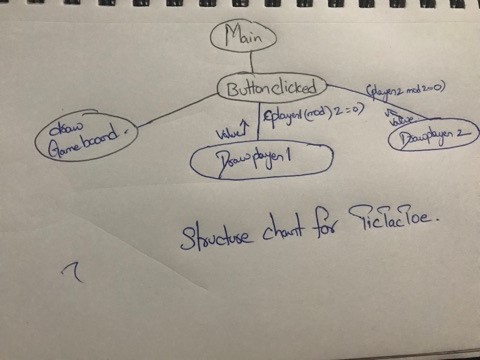 Main
Buttonclicked
draw
Gameboard.
value
(player1(mod) 2=0)
Drawplayer 1
(player2 mod 2=0)
value
Drawplayer 2
Structure chart for TicTacToe.